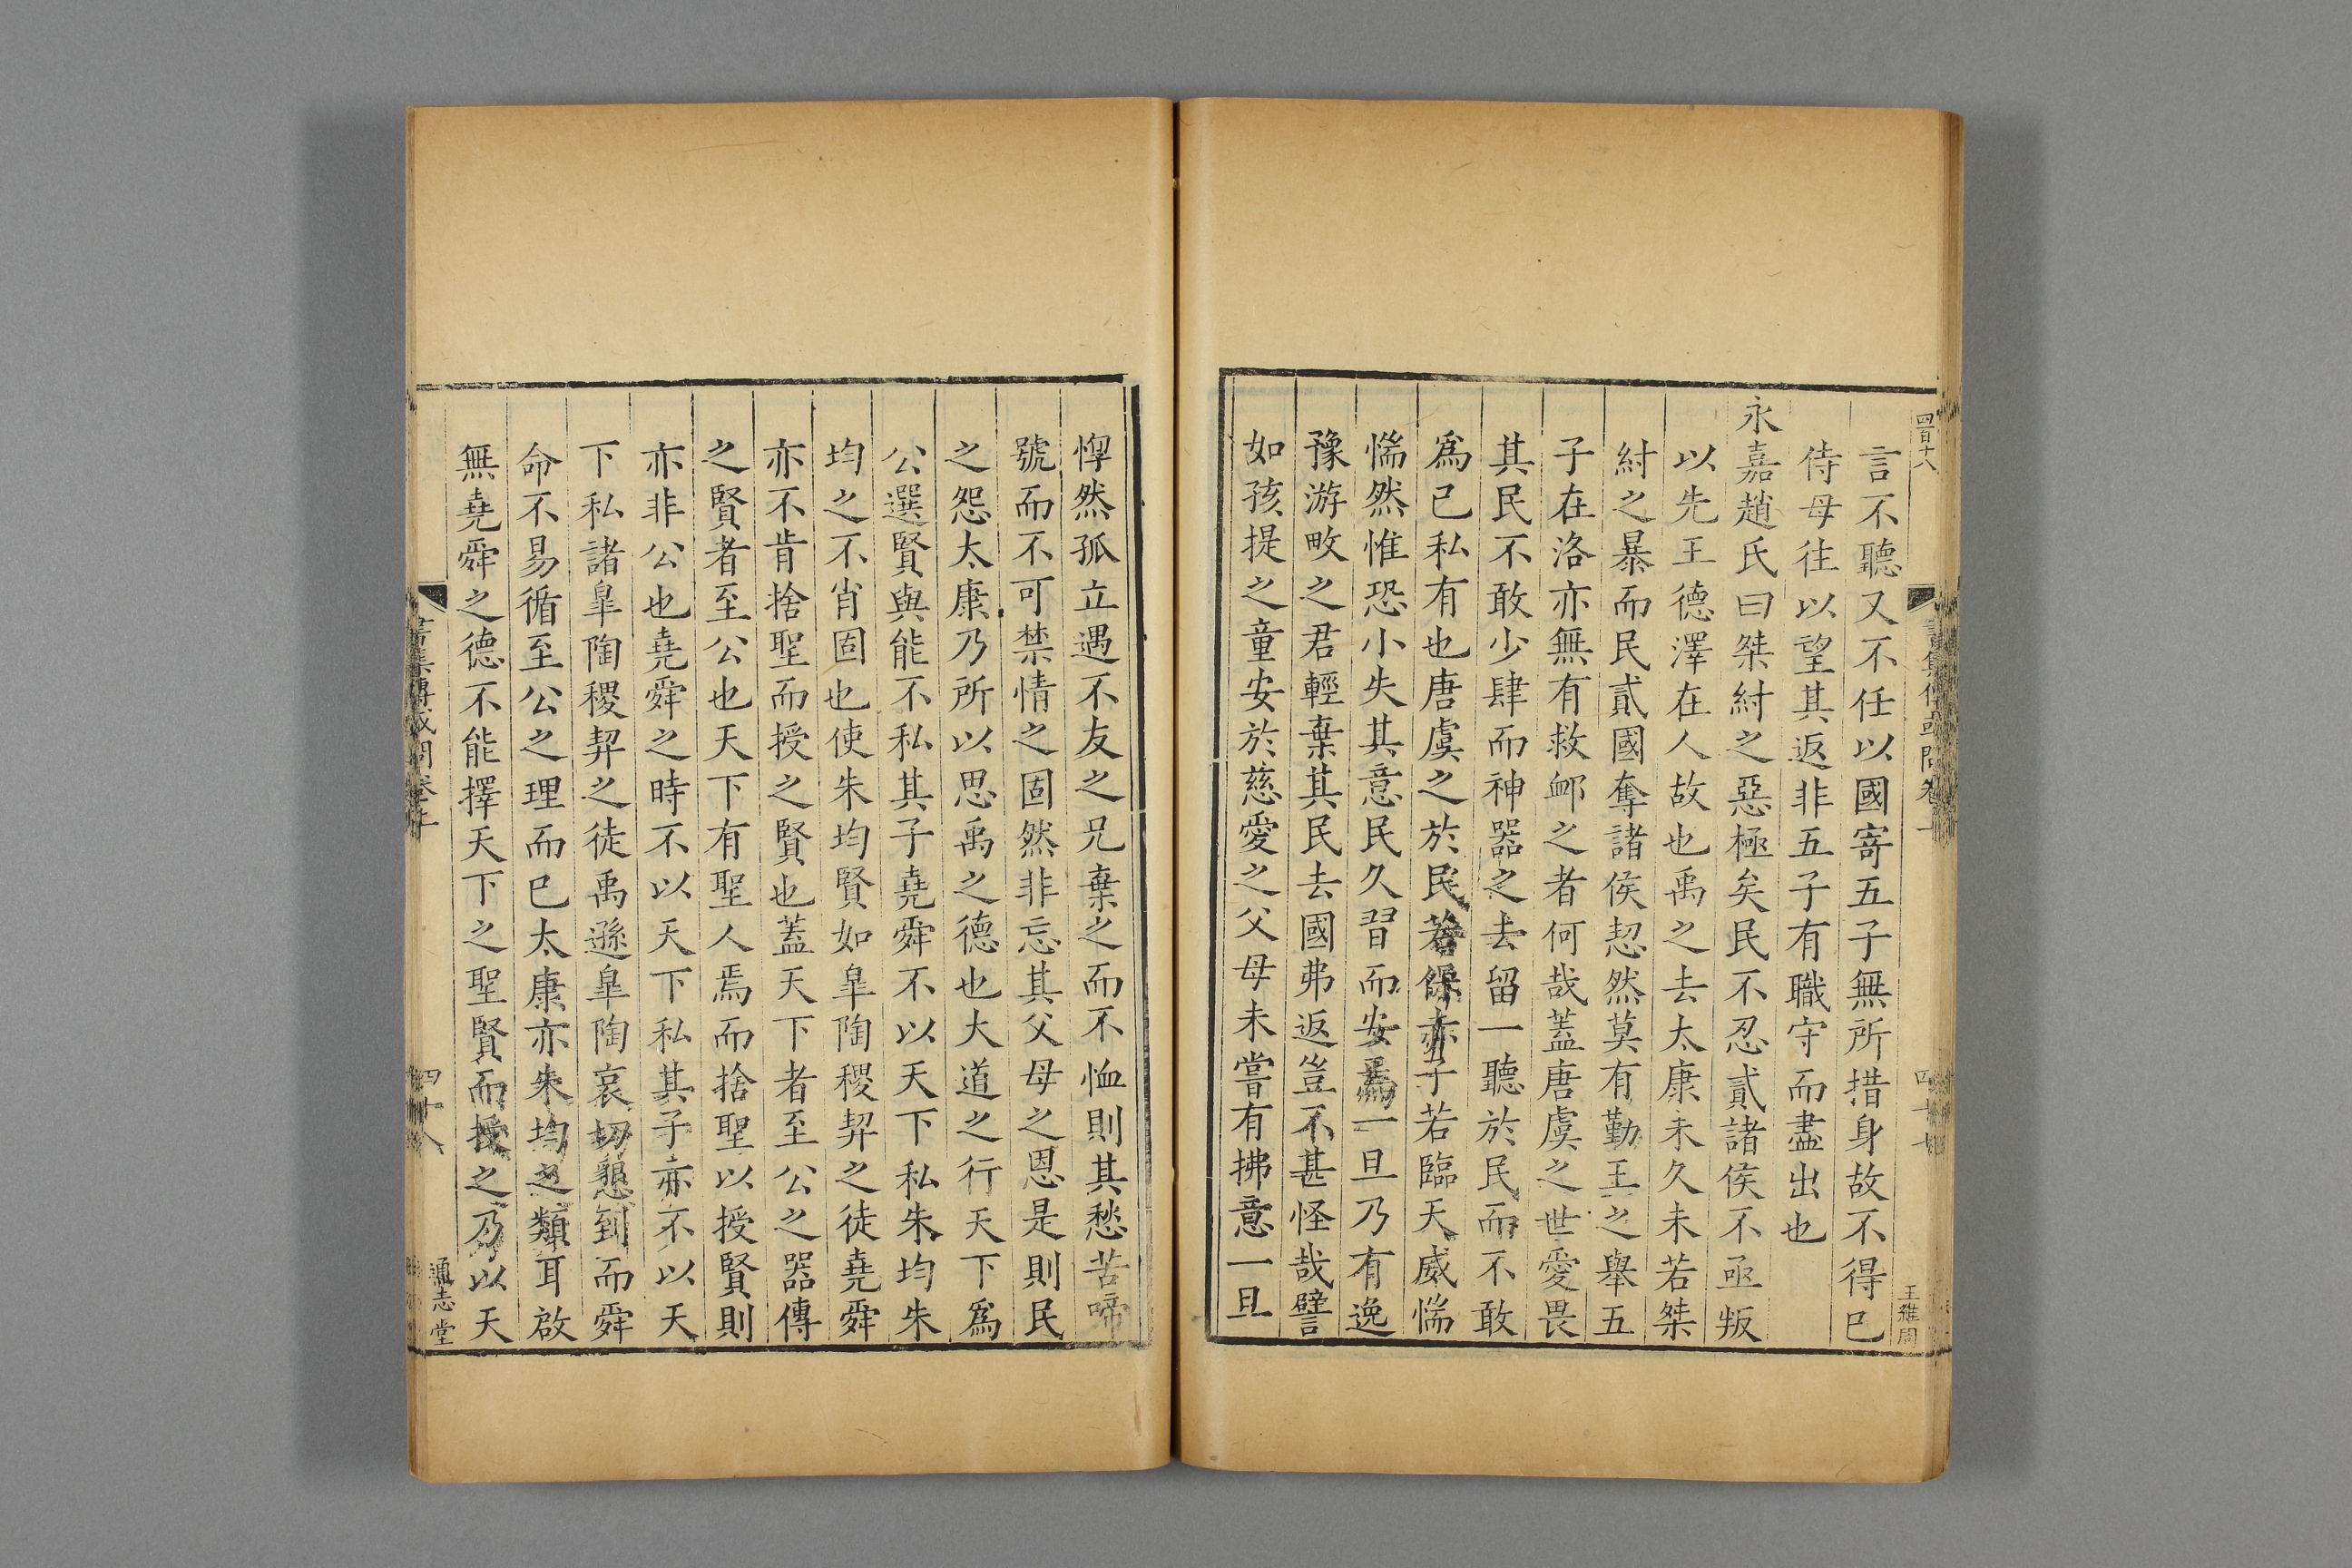 四百十八
王維周
言不聽又不任以國寄五子無所措身故不得已
侍母往以望其返非五子有職守而盡出也
永嘉趙氏曰桀紂之惡極矣民不忍貳諸侯不亟叛
以先王德澤在人故也禹之去太康未久未若桀
紂之暴而民貳國奪諸侯恝然莫有勤王之舉五
子在洛亦無有救卹之者何哉蓋唐虞之世愛畏
其民不敢少肆而神器之去留一聽於民而不敢
爲已私有也唐虞之於民若保赤子若臨天威惴
惴然惟恐小失其意民久習而安焉一旦乃有逸
豫游畋之君輕棄其民去國弗返豈不甚怪哉譬
如孩提之童安於慈愛之父母未嘗有拂意一旦
惸然孤立遇不友之兄棄之而不恤則其愁苦啼
號而不可禁情之固然非忘其父母之恩是則民
之怨太康乃所以思禹之德也大道之行天下爲
公選賢與能不私其子堯舜不以天下私朱均朱
均之不肖固也使朱均賢如臯陶稷契之徒堯舜
亦不肯捨聖而授之賢也蓋天下者至公之器傳
之賢者至公也天下有聖人焉而捨聖以授賢則
亦非公也堯舜之時不以天下私其子亦不以天
下私諸臯陶稷契之徒禹遜臯陶哀切懇到而舜
命不易循至公之理而已太康亦朱均之類耳啟
無堯舜之德不能擇天下之聖賢而授之乃以天
書集傳或問卷上
四十八
通志堂